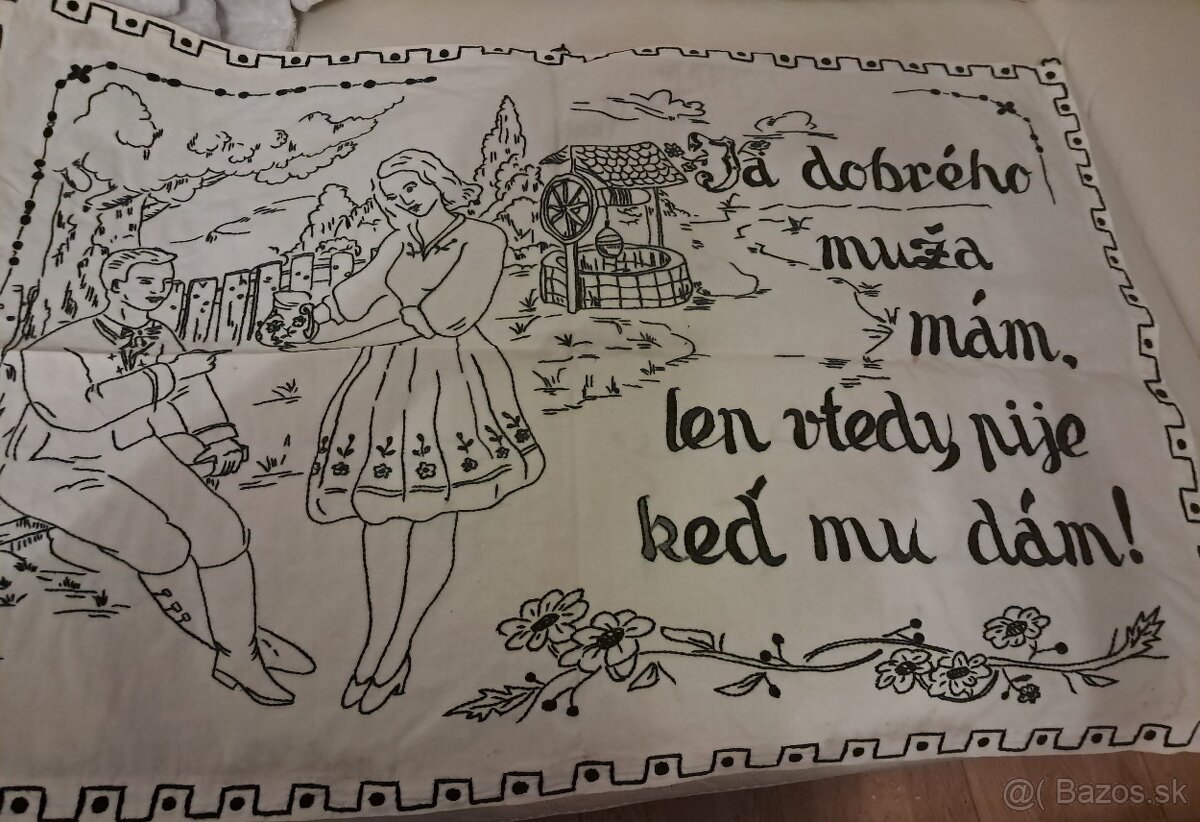 Ja dobrého
muža
mám,
len vtedy pije
keď mu dám!
@( Bazos.sk